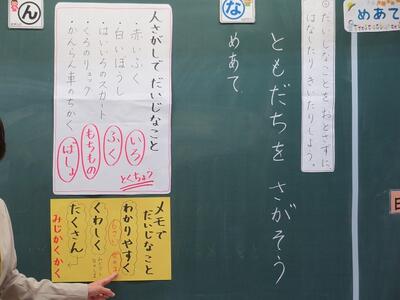 めあて
①だいじなことを おとさずに
はなしたり きいたりしよう。
な
ともだちを さがそう
めあて
ん
人さがしで だいじなこと
・赤いふく
・白いぼうし
・はいいろのスカート
・くろのリュック
・かんらん車のちかく
いろ
ふく
もちもの
ばしょ
とくちょう
メモで
だいじなこと
わかりやすく
くわしく
たくさん
みじかくかく